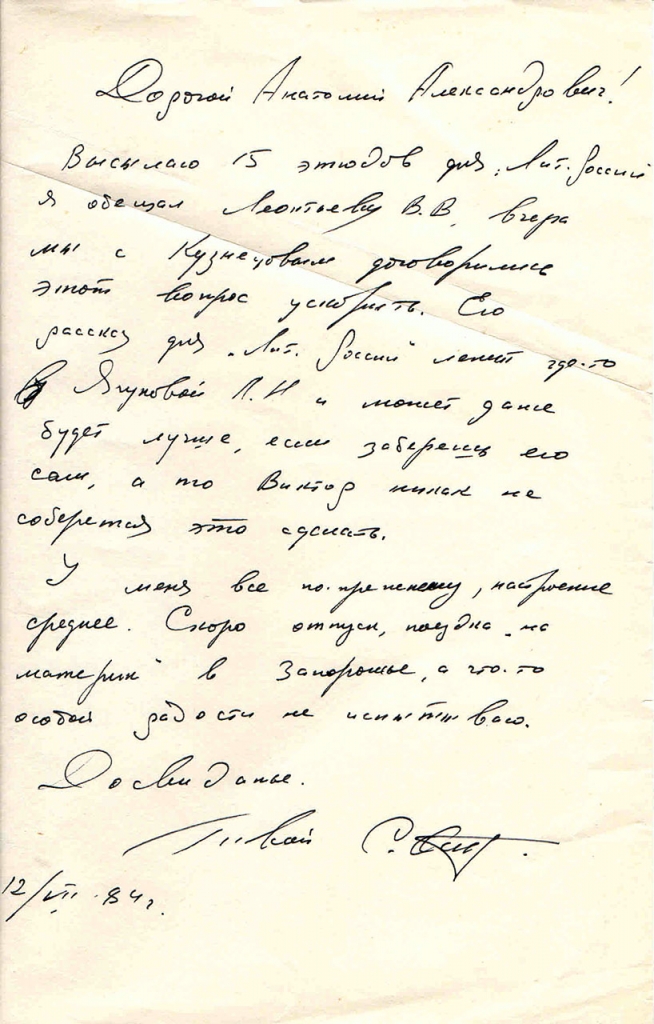 Дорогой Анатолий Александрович!
Высылаю 15 этюдов для „Лит. России
я обещал Леонтьеву В.В, вчера
мы с Кузнецовым договорились
этот вопрос ускорить. Его
рассказ для „Лит. России" лежит где-то
в Ягуновой Л.Н и может даже
будет лучше, если заберешь его
сам, а то Виктор никак не
соберется это сделать.
У меня все по-прежнему, настроение
среднее. Скоро отпуск, поездка „на
материк" в Запорожье, а что-то
особой радости не испытываю.
До свиданье.
Твой С.
12/VII 84 г.